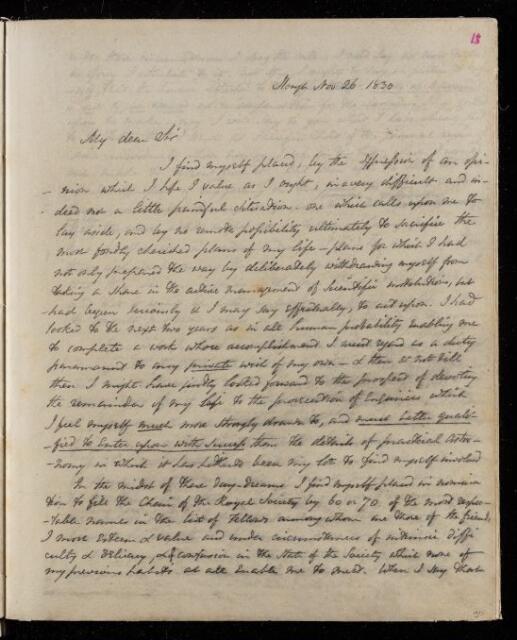 18
Slough Nov 26 1830
My dear Sir
I find myself placed, by the expression of an opi-
-nion which I hope I value as I ought, in a very difficult and in-
deed not a little painful situation - one which calls upon me to
lay aside, and by no remote possibility ultimately to sacrifice the
most fondly cherished plans of my life - plans for which I had
not only prepared the way by deliberately withdrawing myself from
taking a share in the active management of Scientific institutions, but
had begun seriously & I may say effectually, to act upon. I had
looked to the next two years as in all human probability enabling me
to complete a work whose accomplishment I must regard as a duty
paramount to any private wish of my own - & then & not till
then I might have fondly looked forward to the prospect of devoting
the remainder of my life to the prosecution of Enquiries which
I feel myself much more strongly drawn to, and much better quali-
-fied to enter upon with success than the details of practical Astro-
-nomy in which it has hitherto been my lot to find myself involved
In the midst of these day-dreams I find myself placed in nomina
tion to fill the Chair of the Royal Society by 60 or 70 of the most respec-
-table names in the list of Fellows among whom are those of the friends
I most esteem & value and under circumstances of extreme diffi
culty & delicacy, & of confusion in the State of the Society which none of
my previous habits at all enable me to meet. When I say that